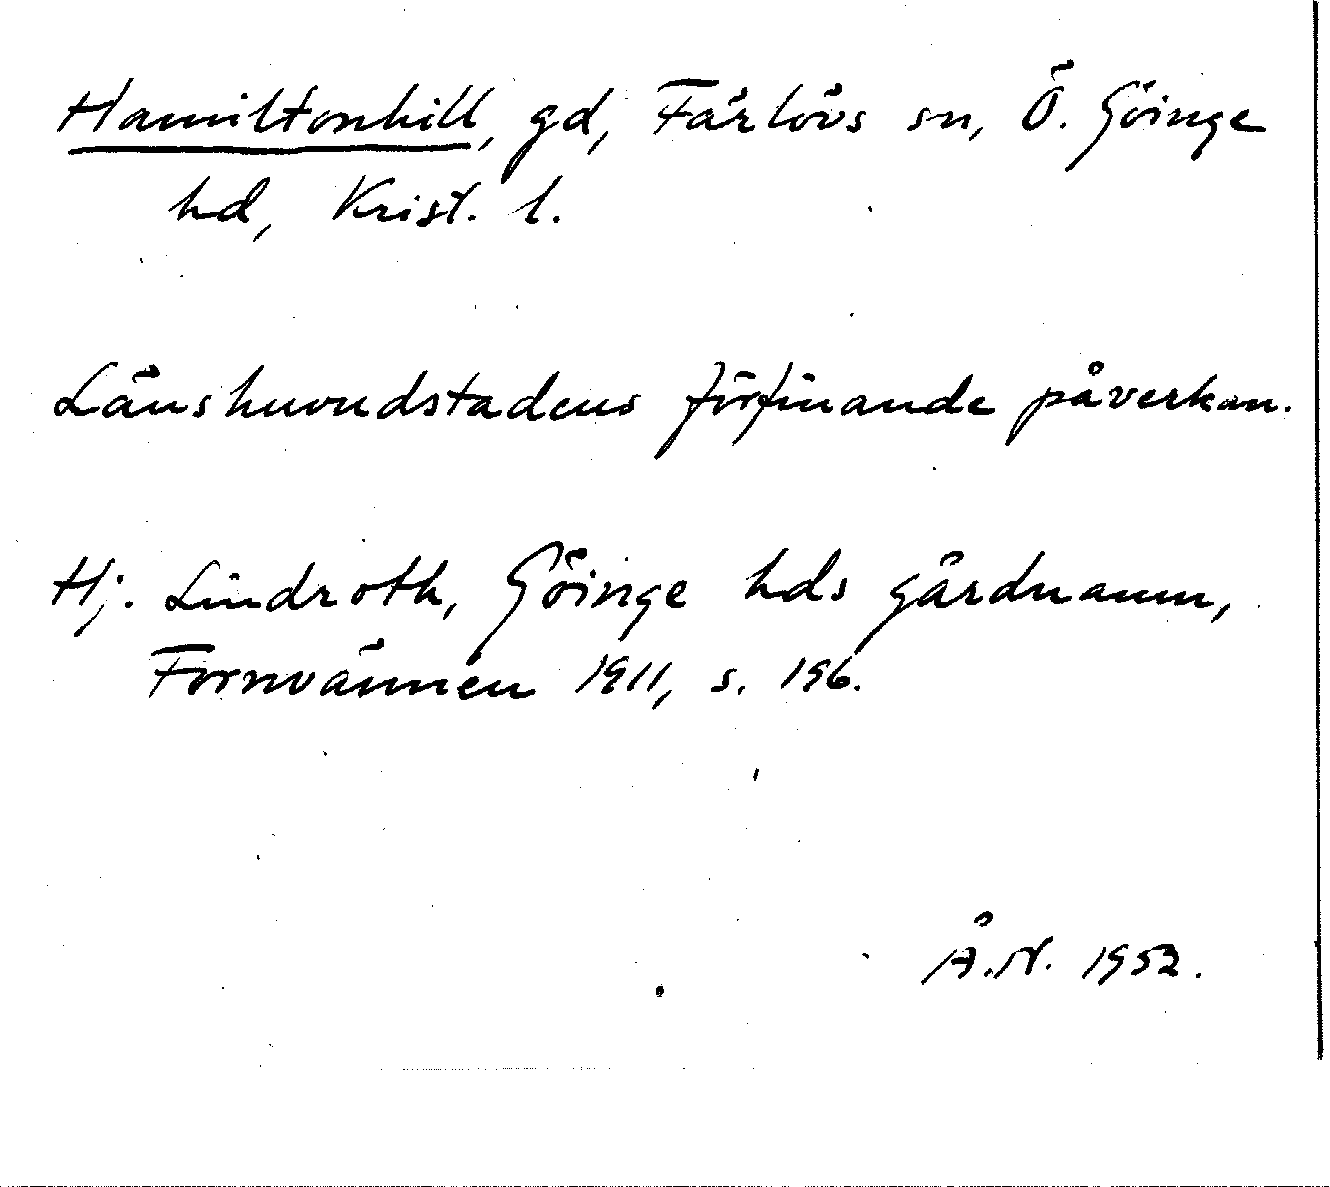 Hamiltonhill, gd, Färlövs sn, Ö. Göinge
hd, Krist. l.
Länshuvudstadens förfinande påverkan.
Hj. Lindroth, Göinge hds gårdnamn,
Fornvännen 1911, s. 196.
Å.N. 1952.